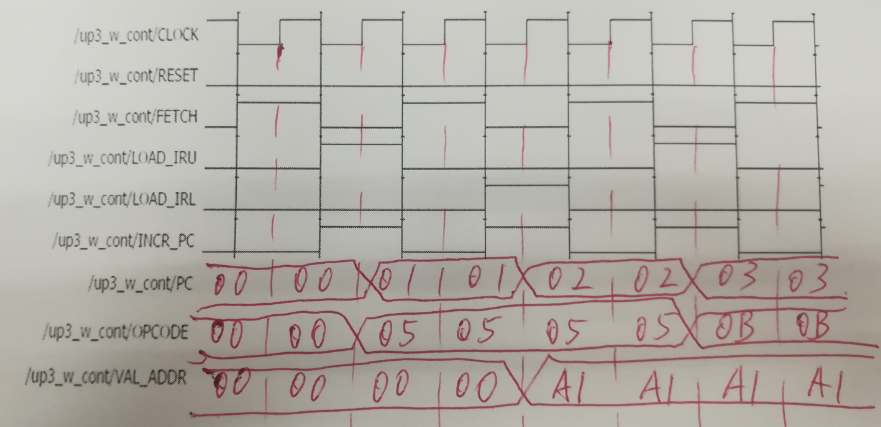 /up3_w_cont/CLOCK
/up3_w_cont/RESET
/up3_w_cont/FETCH
/up3_w_cont/LOAD_IRU
/up3_w_cont/LOAD_IRL
/up3_w_cont/INCR_PC
/up3_w_cont/PC 00 00 01 01 02 02 03 03
/up3_w_cont/OPCODE 00 00 05 05 05 05 0B 0B
/up3_w_cont/VAL_ADDR 00 00 00 00 A1 A1 A1 A1